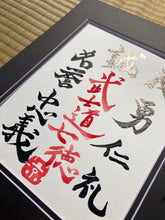 勇
仁
礼
誠
武士道七徳
名誉
忠義